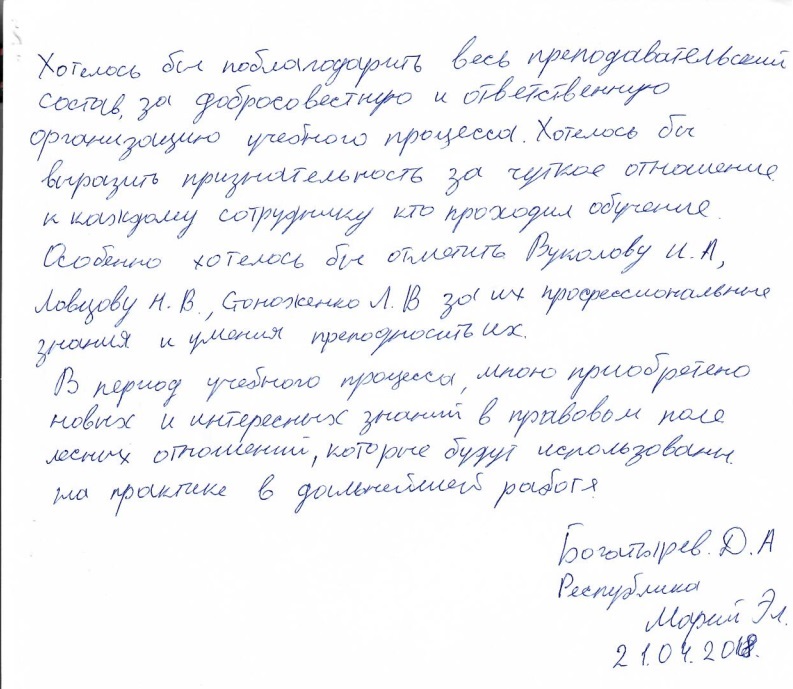 Хотелось бы поблагодарить весь преподавательский
состав, за добросовестную и ответственную
организацию учебного процесса. Хотелось бы
выразить признательность за чуткое отношение
к каждому сотруднику кто проходил обучение.
Особенно хотелось бы отметить Вуколову И.А,
Ловцову Н.В., Стоноженко Л.В за их профессиональные
знания и умения преподносить их.
В период учебного процесса, мною приобретено
новых и интересных знаний в правовом поле
лесных отношений, которые будут использованы
на практике в дальнейшей работе
Богатырев. Д.А
Республика
Марий Эл.
21.04.2018.